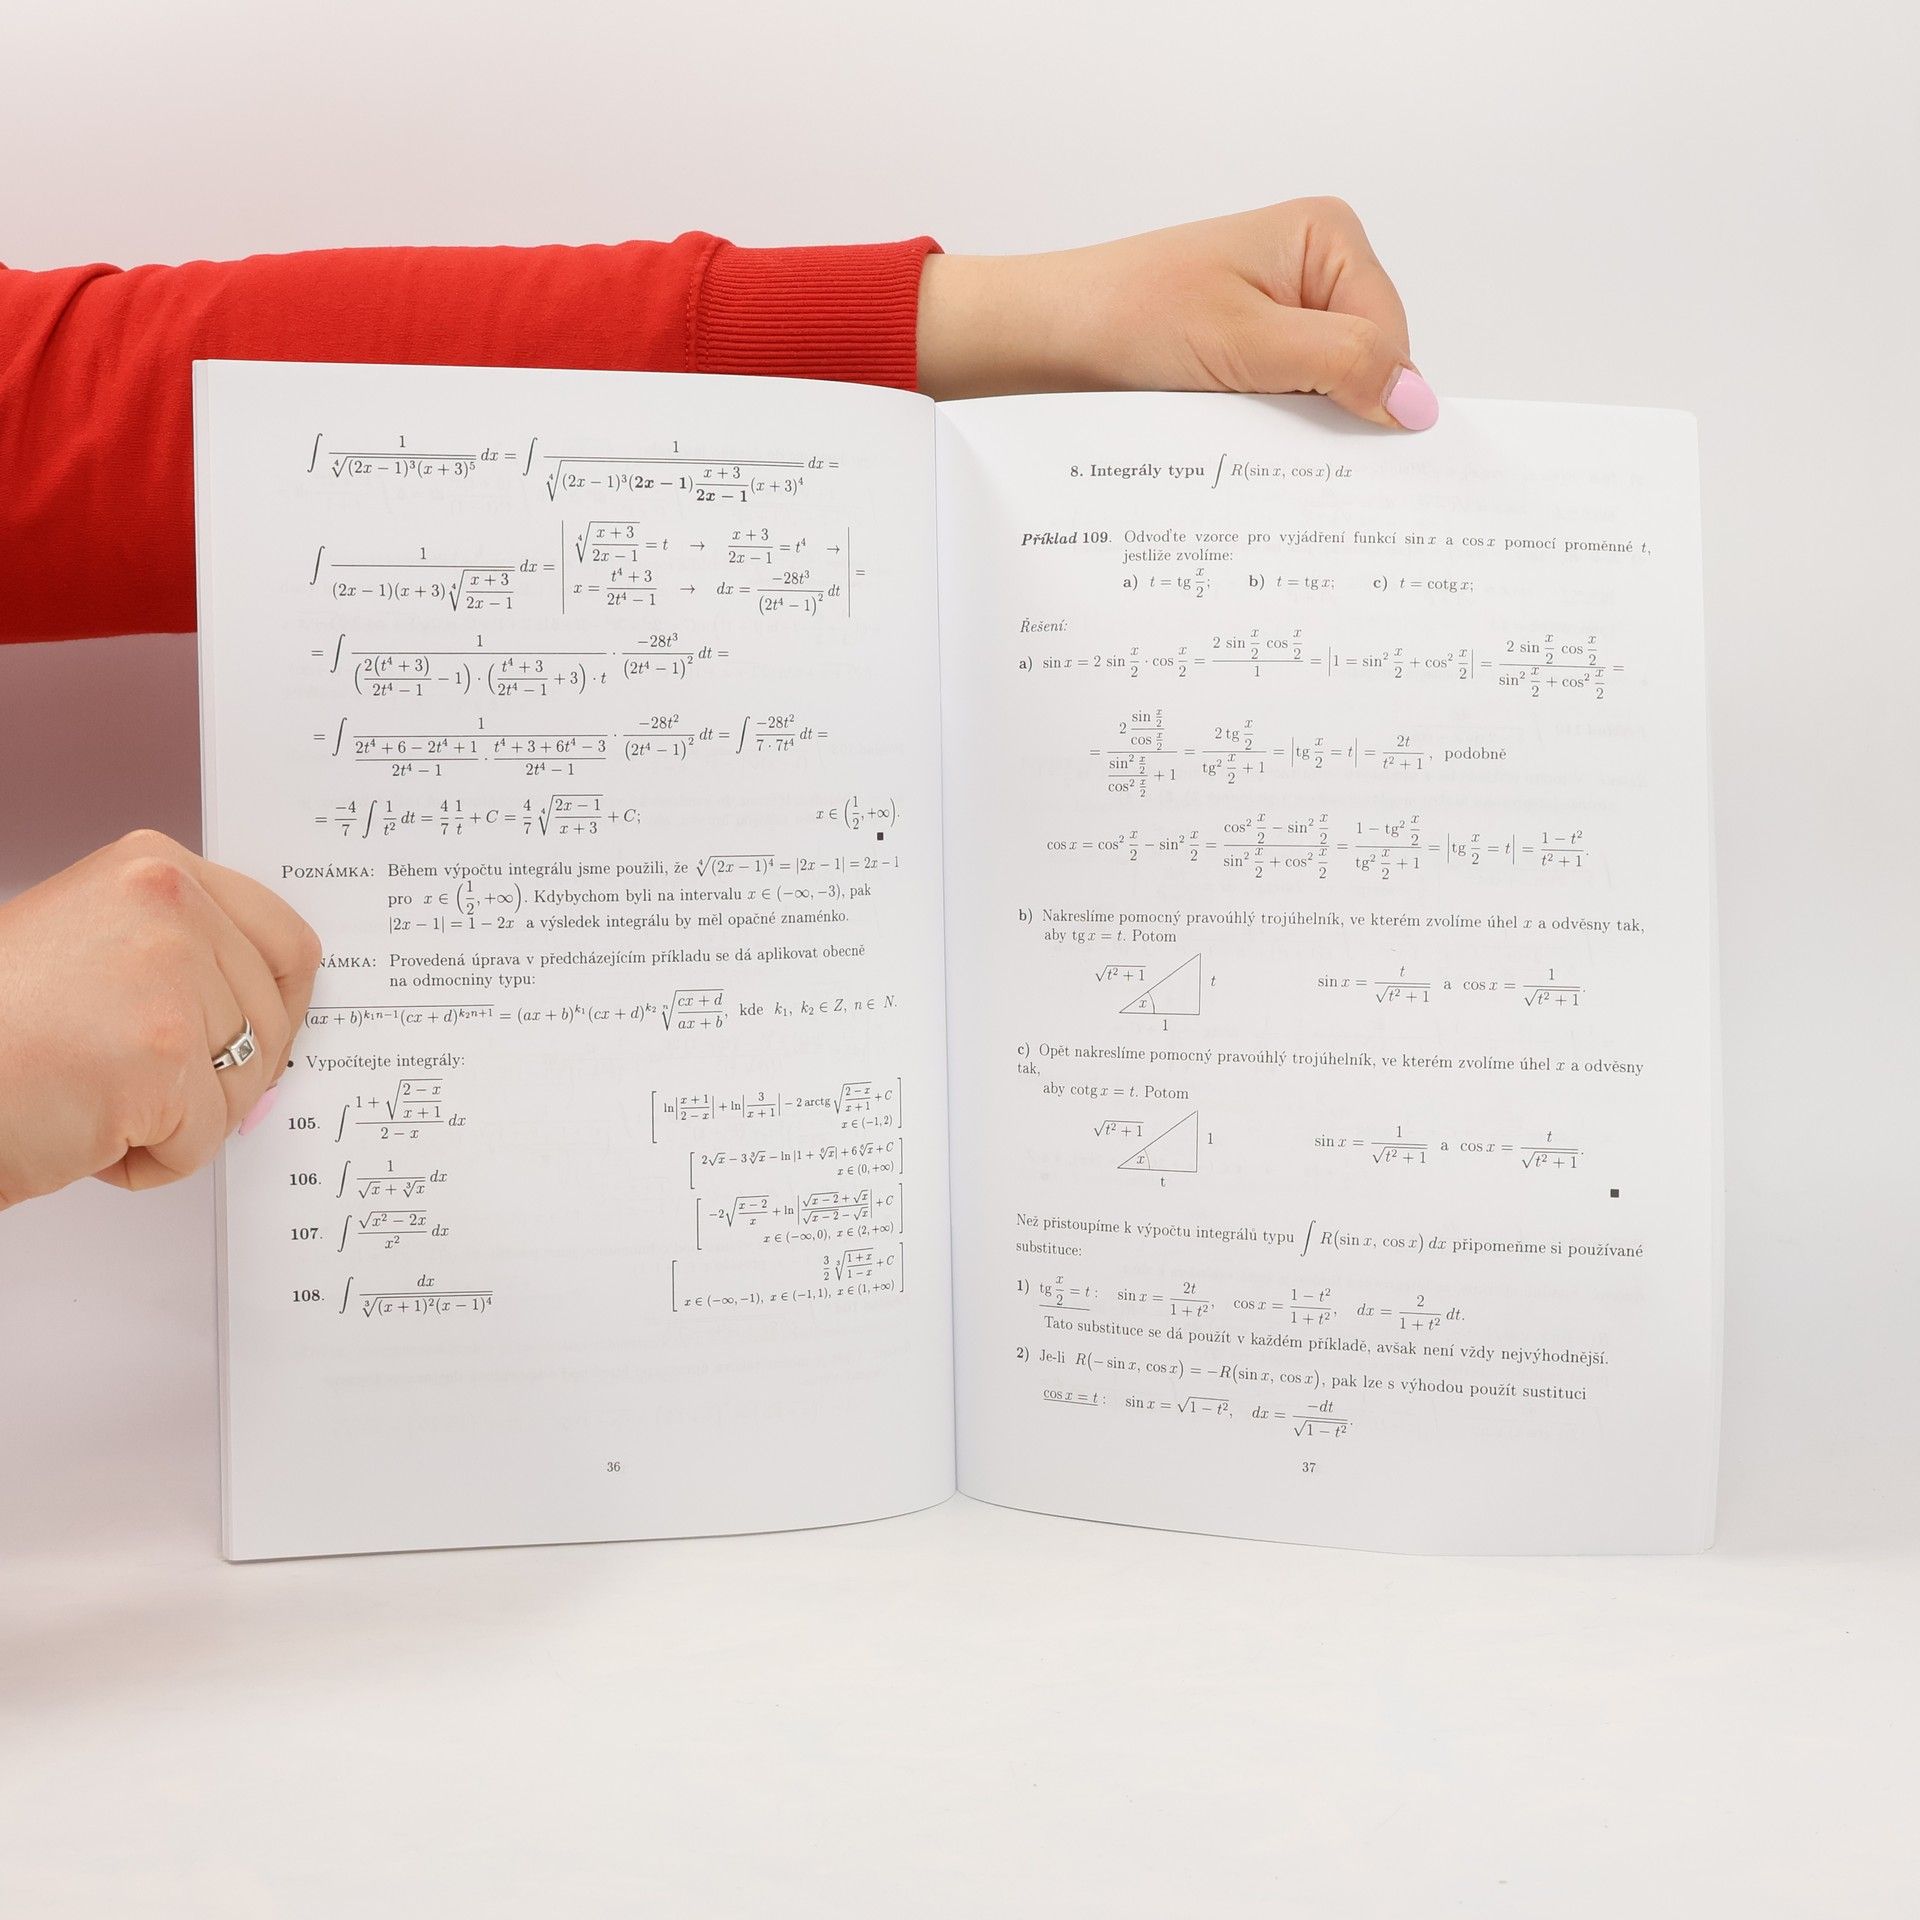 ∫ 1/∜((2x − 1)³(x + 3)⁵) dx = ∫ 1/∜((2x − 1)³(2x − 1) (x + 3)/(2x − 1) (x + 3)⁴) dx =
∫ 1/((2x − 1)(x + 3) ∜((x + 3)/(2x − 1))) dx = | ∜((x + 3)/(2x − 1)) = t → (x + 3)/(2x − 1) = t⁴ →
x = (t⁴ + 3)/(2t⁴ − 1) → dx = −28t³/(2t⁴ − 1)² dt | =
= ∫ 1/((2(t⁴ + 3)/(2t⁴ − 1) − 1) · ((t⁴ + 3)/(2t⁴ − 1) + 3) · t) · −28t³/(2t⁴ − 1)² dt =
= ∫ 1/((2t⁴ + 6 − 2t⁴ + 1)/(2t⁴ − 1) · (t⁴ + 3 + 6t⁴ − 3)/(2t⁴ − 1)) · −28t²/(2t⁴ − 1)² dt = ∫ −28t²/(7 · 7t⁴) dt =
= −4/7 ∫ 1/t² dt = 4/7 1/t + C = 4/7 ∜((2x − 1)/(x + 3)) + C; x ∈ (1/2, +∞).
■
POZNÁMKA: Během výpočtu integrálu jsme použili, že ∜((2x − 1)⁴) = |2x − 1| = 2x − 1
pro x ∈ (1/2, +∞). Kdybychom byli na intervalu x ∈ (−∞, −3), pak
|2x − 1| = 1 − 2x a výsledek integrálu by měl opačné znaménko.
NÁMKA: Provedená úprava v předcházejícím příkladu se dá aplikovat obecně
na odmocniny typu:
(ax + b)^(k₁n−1)(cx + d)^(k₂n+1) = (ax + b)^k₁(cx + d)^k₂ ⁿ√((cx + d)/(ax + b)), kde k₁, k₂ ∈ Z, n ∈ N.
• Vypočítejte integrály:
105. ∫ (1 + √((2 − x)/(x + 1)))/(2 − x) dx [ ln|(x + 1)/(2 − x)| + ln|3/(x + 1)| − 2 arctg √((2 − x)/(x + 1)) + C
x ∈ (−1, 2) ]
106. ∫ 1/(√x + ∛x) dx [ 2√x − 3∛x − ln |1 + ⁶√x| + 6⁶√x + C
x ∈ (0, +∞) ]
107. ∫ √(x² − 2x)/x² dx [ −2√((x − 2)/x) + ln|(√(x − 2) + √x)/(√(x − 2) − √x)| + C
x ∈ (−∞, 0), x ∈ (2, +∞) ]
108. ∫ dx/∛((x + 1)²(x − 1)⁴) [ 3/2 ∛((1 + x)/(1 − x)) + C
x ∈ (−∞, −1), x ∈ (−1, 1), x ∈ (1, +∞) ]
36
8. Integrály typu ∫ R(sin x, cos x) dx
Příklad 109. Odvoďte vzorce pro vyjádření funkcí sin x a cos x pomocí proměnné t,
jestliže zvolíme:
a) t = tg x/2; b) t = tg x; c) t = cotg x;
Řešení:
a) sin x = 2 sin x/2 · cos x/2 = (2 sin x/2 cos x/2)/1 = |1 = sin² x/2 + cos² x/2| = (2 sin x/2 cos x/2)/(sin² x/2 + cos² x/2) =
= (2 (sin x/2)/(cos x/2))/((sin² x/2)/(cos² x/2) + 1) = (2 tg x/2)/(tg² x/2 + 1) = |tg x/2 = t| = 2t/(t² + 1), podobně
cos x = cos² x/2 − sin² x/2 = (cos² x/2 − sin² x/2)/(sin² x/2 + cos² x/2) = (1 − tg² x/2)/(tg² x/2 + 1) = |tg x/2 = t| = (1 − t²)/(t² + 1).
b) Nakreslíme pomocný pravoúhlý trojúhelník, ve kterém zvolíme úhel x a odvěsny tak,
aby tg x = t. Potom
√(t² + 1) t x 1 sin x = t/√(t² + 1) a cos x = 1/√(t² + 1).
c) Opět nakreslíme pomocný pravoúhlý trojúhelník, ve kterém zvolíme úhel x a odvěsny
tak,
aby cotg x = t. Potom
√(t² + 1) 1 x t sin x = 1/√(t² + 1) a cos x = t/√(t² + 1).
■
Než přistoupíme k výpočtu integrálů typu ∫ R(sin x, cos x) dx připomeňme si používané
substituce:
1) tg x/2 = t : sin x = 2t/(1 + t²), cos x = (1 − t²)/(1 + t²), dx = 2/(1 + t²) dt.
Tato substituce se dá použít v každém příkladě, avšak není vždy nejvýhodnější.
2) Je-li R(− sin x, cos x) = −R(sin x, cos x), pak lze s výhodou použít sustituci
cos x = t : sin x = √(1 − t²), dx = −dt/√(1 − t²).
37